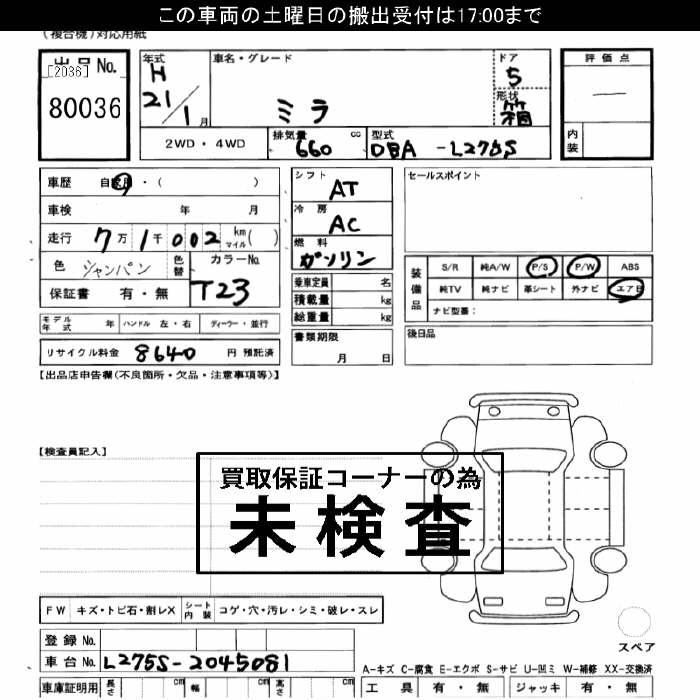 この車両の土曜日の搬出受付は17:00まで
(複合機)対応用紙
出品No.
[2036]
80036
年式
H
21/1月
車名・グレード
ミラ
ドア
5
形状
箱
評価点
—
内装
2WD・4WD
排気量 660 cc
型式 DBA -L275S
車歴 自家用・( )
車検 年 月
走行 7万1千002 km マイル( )
色 シャンパン 色替
カラーNo.
T23
保証書 有・無
シフト
AT
冷房
AC
燃料
ガソリン
乗車定員 名
積載量 kg
総重量 kg
セールスポイント
装備品
S/R 純A/W P/S P/W ABS
純TV 純ナビ 革シート 外ナビ エアB
ナビ型番:
モデル年式 年 ハンドル 左・右 ディーラー・並行
書類期限
月 日
後日品
リサイクル料金 8640 円 預託済
【出品店申告欄(不良箇所・欠品・注意事項等)】
【検査員記入】
買取保証コーナーの為
未検査
FW キズ・トビ石・割レX シート内装 コゲ・穴・汚レ・シミ・破レ・スレ
登録No.
車台No. L275S-2045081
車庫証明用 長さ cm 幅 cm 高さ cm
スペア
A-キズ C-腐食 E-エクボ S-サビ U-凹ミ W-補修 XX-交換済
工具 有・無 ジャッキ 有・無